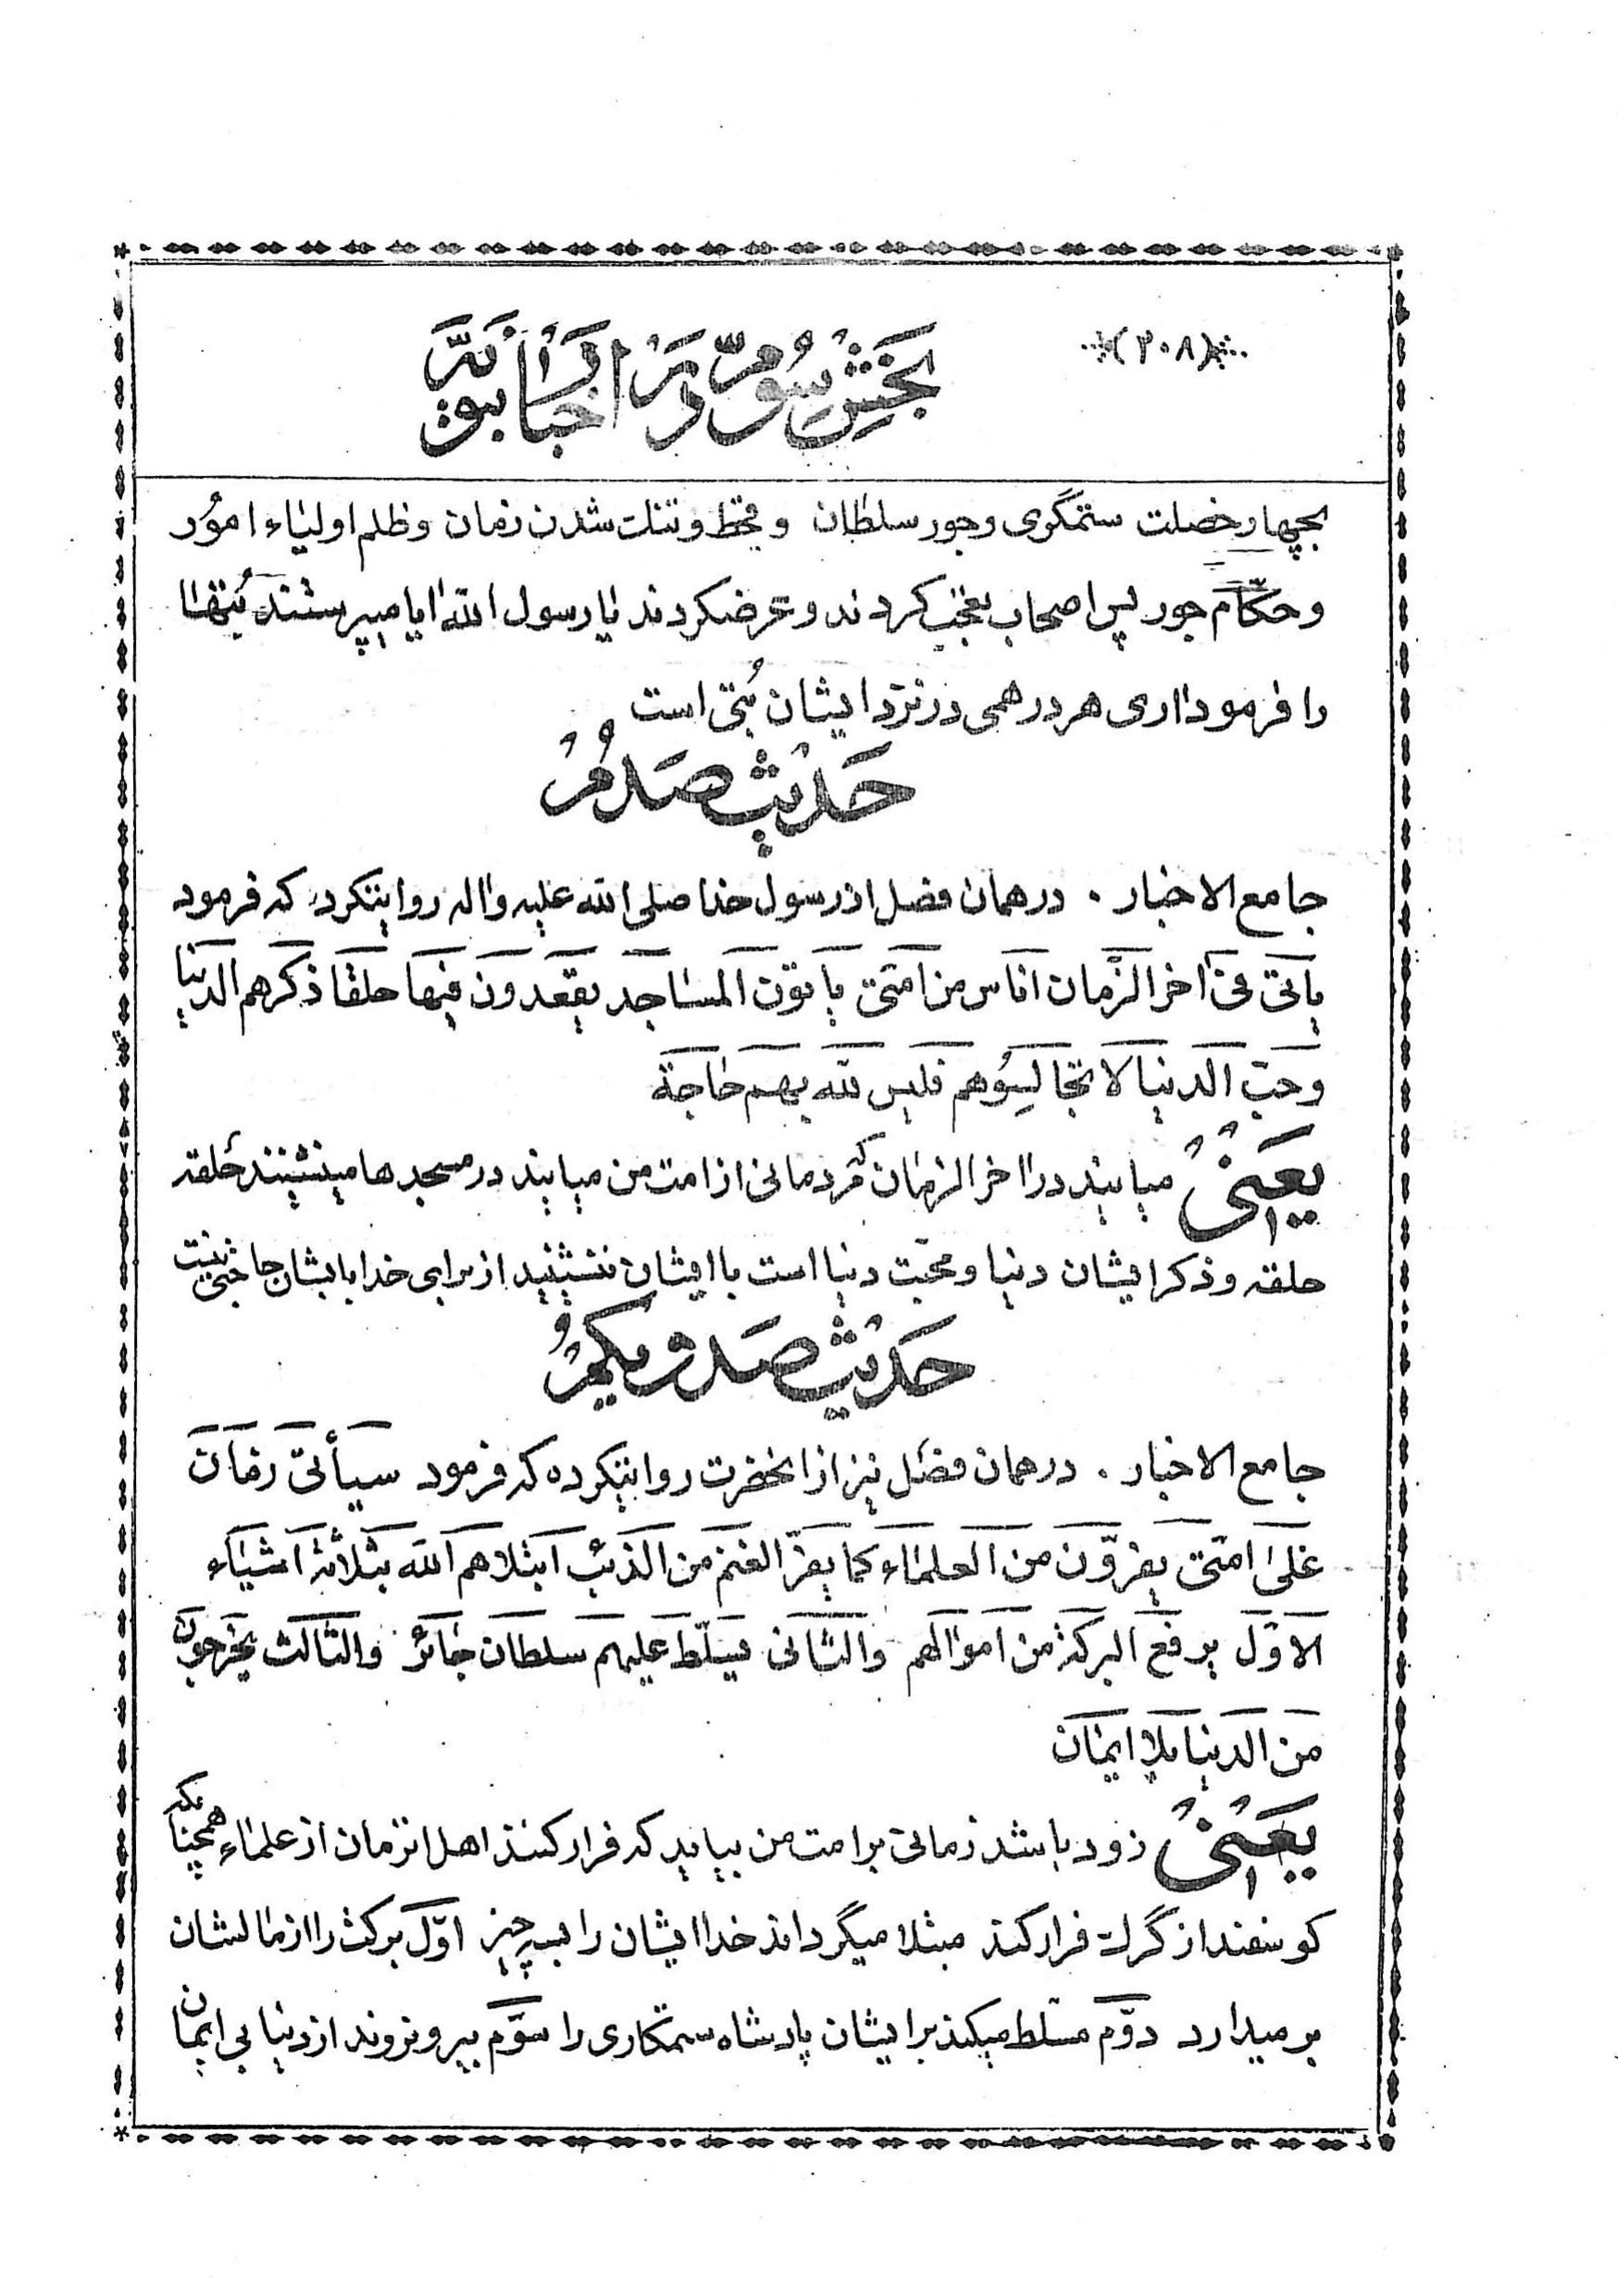 (۳۰۸)
بخش سوم در اخبار نبویه
بچهار خصلت ستمگری و جور سلطان و قحط و تنگ شدن زمان و ظلم اولیاء امور
و حکّام جور پس اصحاب تعجب کردند و عرضکردند یا رسول الله ایا میپرستند بُتها
را فرمود اری هر درهمی در نزد ایشان بُتی است
حدیث صدم
جامع الاخبار . در همان فصل از رسول خدا صلی الله علیه واله روایتکرده که فرمود
یأتی فی اخر الزّمان اناس من امّتی یأتون المساجد یقعدون فیها حلقا ذکرهم الدنیا
و حبّ الدنیا لا تجالسوهم فلیس لله بهم حاجة
یعنی میایند در اخر الزمان مردمانی از امت من میایند در مسجدها مینشینند حلقه
حلقه و ذکر ایشان دنیا و محبّت دنیا است با ایشان ننشینید از برای خدا بایشان حاجتی نیست
حدیث صد و یکم
جامع الاخبار . در همان فصل نیز از انحضرت روایتکرده که فرمود سیأتی زمان
علی امّتی یفرّون من العلماء کما یفرّ الغنم من الذئب ابتلاهم الله بثلاثة اشیاء
الاوّل یرفع البرکة من اموالهم والثانی یسلّط علیهم سلطان جائر والثالث یخرجون
من الدنیا بلا ایمان
یعنی زود باشد زمانی بر امت من بیاید که فرار کنند اهل انزمان از علماء همچنانکه
گوسفند از گرگ فرار کند مبتلا میگرداند خدا ایشان را بسه چیز اوّل برکت را از مالشان
بر میدارد دوّم مسلّط میکند بر ایشان پادشاه ستمکاری را سوّم بیرون روند از دنیا بی ایمان